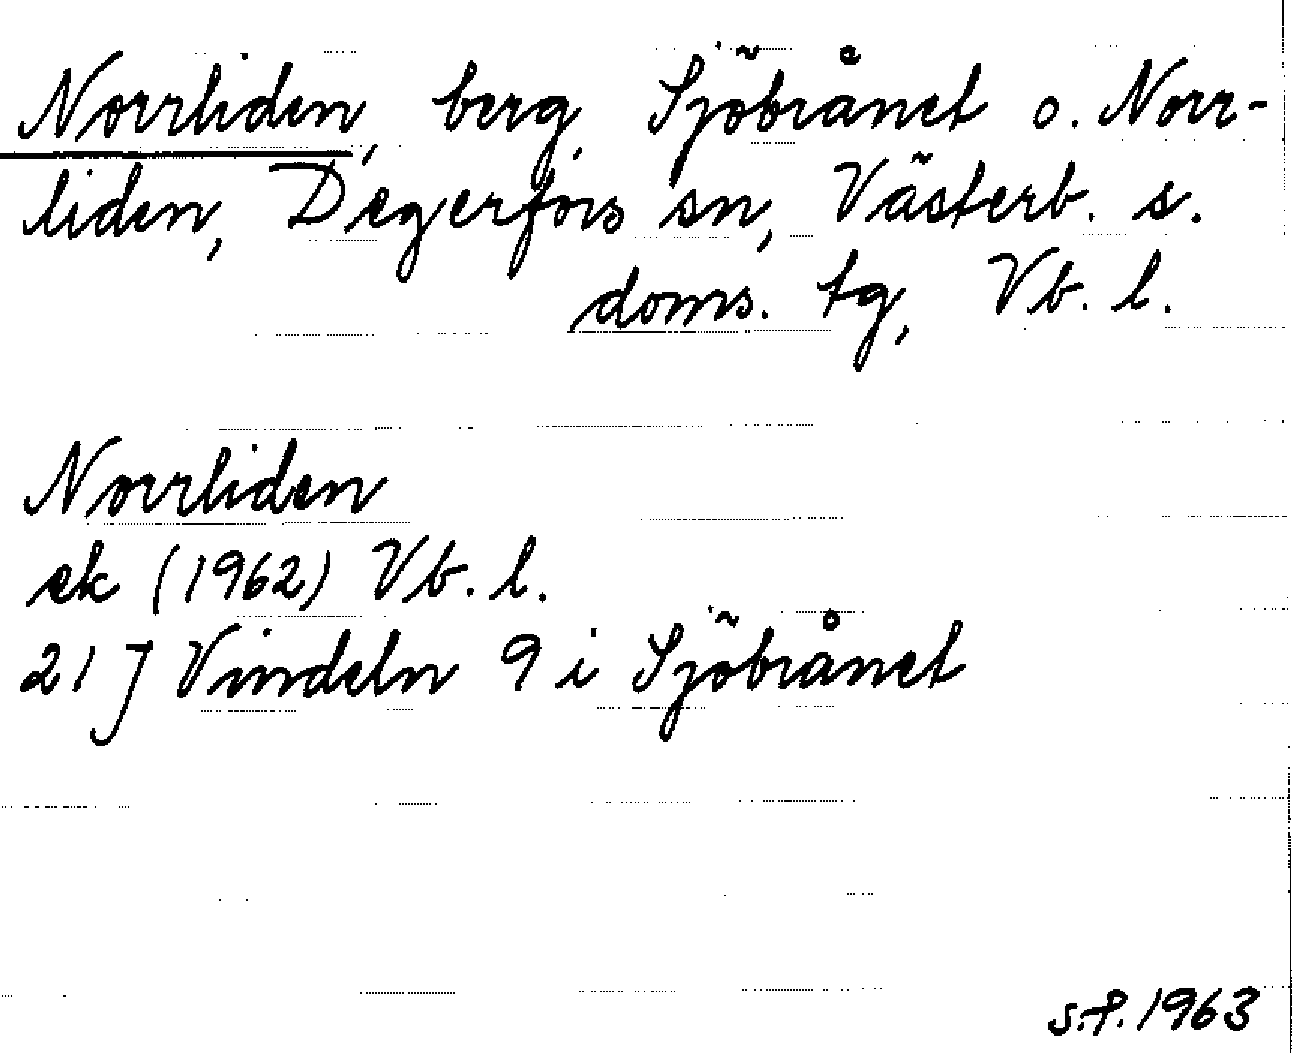 Norrliden, berg, Sjöbrånet o. Norr-
liden, Degerfors sn, Västerb. s.
doms. tg, Vb. l.
Norrliden
ek (1962) Vb. l.
21 J Vindeln 9 i Sjöbrånet
s.f. 1963